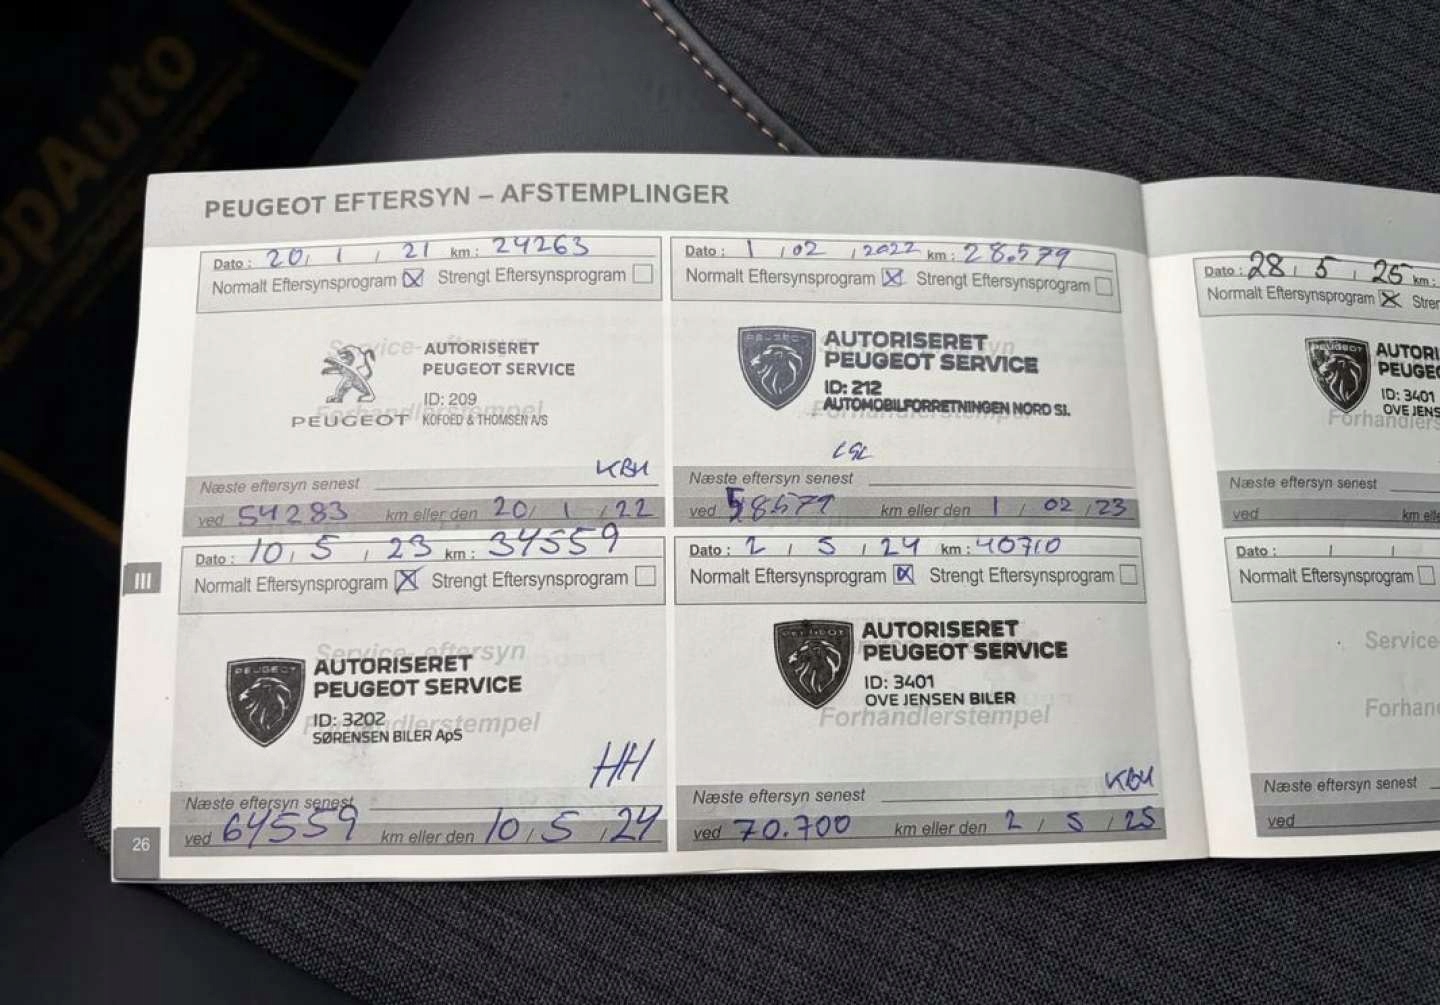 PEUGEOT EFTERSYN – AFSTEMPLINGER
Dato : 20 / 1 / 21 km : 24263
Normalt Eftersynsprogram Strengt Eftersynsprogram
Service-eftersyn
AUTORISERET
PEUGEOT SERVICE
ID: 209
KOFOED & THOMSEN A/S
PEUGEOT
Forhandlerstempel
KBH
Næste eftersyn senest
ved 54283 km eller den 20 / 1 / 22
Dato : 1 / 02 / 2022 km : 28.579
Normalt Eftersynsprogram Strengt Eftersynsprogram
PEUGEOT
AUTORISERET
PEUGEOT SERVICE
ID: 212
AUTOMOBILFORRETNINGEN NORD SJ.
Forhandlerstempel
Næste eftersyn senest
ved 58579 km eller den 1 / 02 / 23
Dato : 10 / 5 / 23 km : 34559
Normalt Eftersynsprogram Strengt Eftersynsprogram
Service-eftersyn
PEUGEOT
AUTORISERET
PEUGEOT SERVICE
ID: 3202
SØRENSEN BILER ApS
Forhandlerstempel
HH
Næste eftersyn senest
ved 64559 km eller den 10 / 5 / 24
Dato : 2 / 5 / 24 km : 40710
Normalt Eftersynsprogram Strengt Eftersynsprogram
PEUGEOT
AUTORISERET
PEUGEOT SERVICE
ID: 3401
OVE JENSEN BILER
Forhandlerstempel
KBH
Næste eftersyn senest
ved 70.700 km eller den 2 / 5 / 25
III
26
Dato : 28 / 5 / 25 km :
Normalt Eftersynsprogram Stren
PEUGEOT
AUTORI
PEUGE
ID: 3401
OVE JENS
Forhandlers
Næste eftersyn senest
ved km elle
Dato : / /
Normalt Eftersynsprogram
Service-
Forhan
Næste eftersyn senest
ved
opAuto